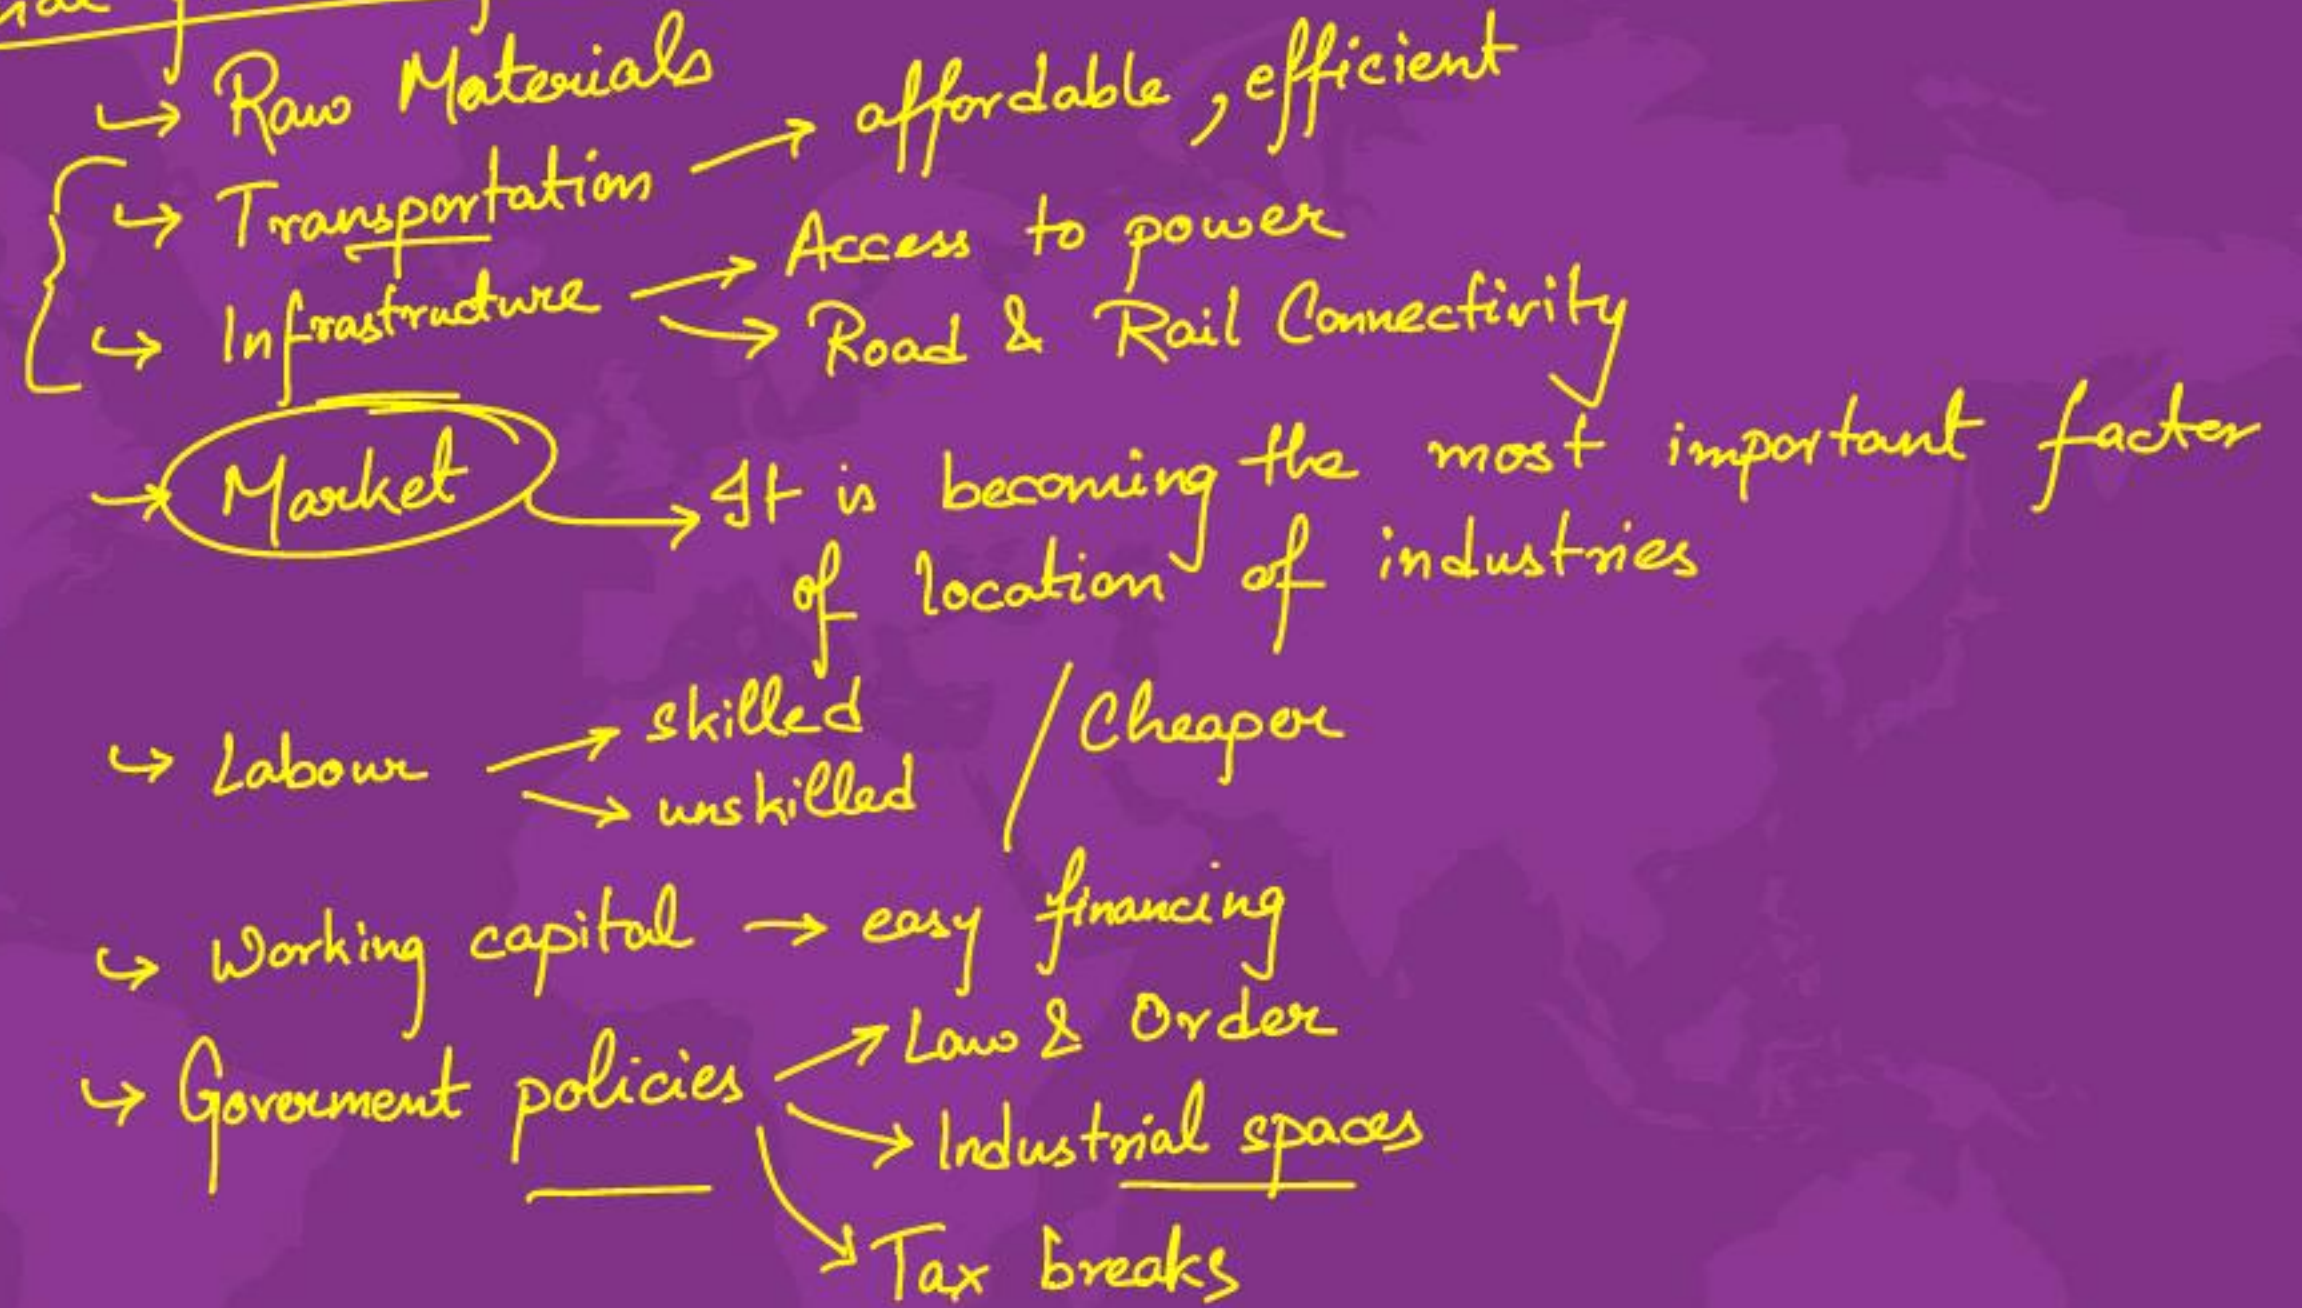 Raw Materials
Transportation → affordable, efficient
Infrastructure → Access to power
→ Road & Rail Connectivity
Market → It is becoming the most important facter
of location of industries
Labour → skilled / Cheaper
→ unskilled
Working capital → easy financing
Goverment policies → Law & Order
→ Industrial spaces
→ Tax breaks